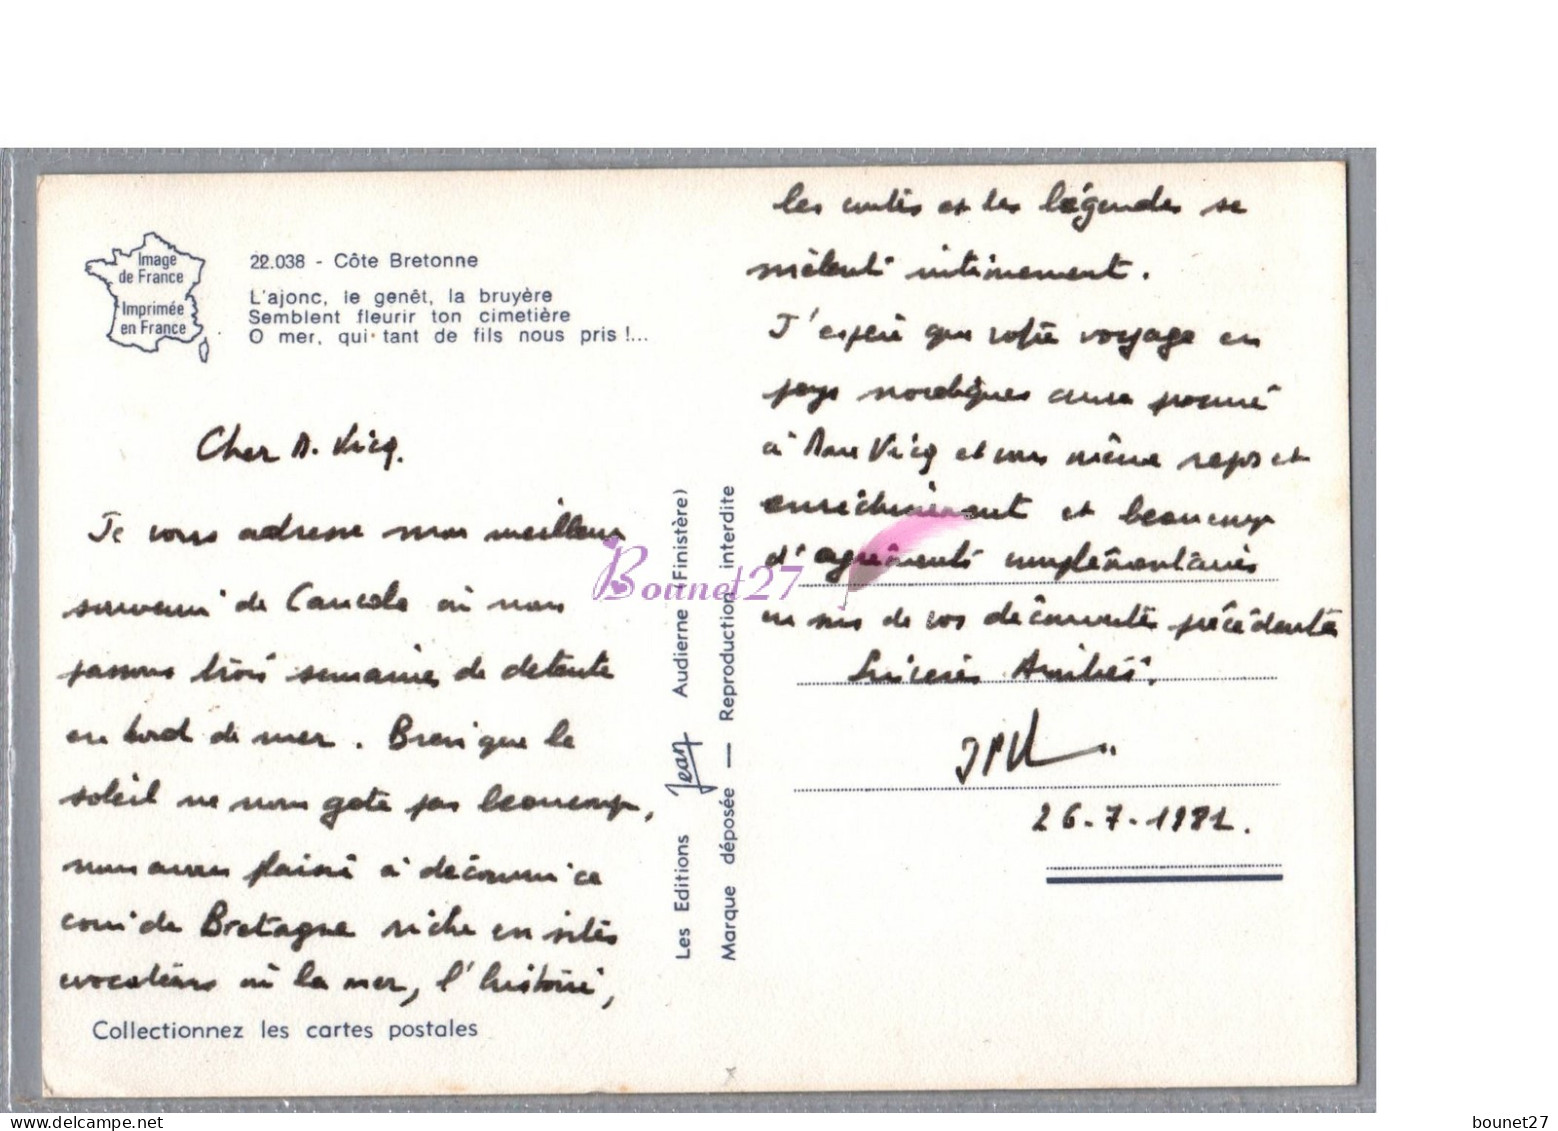 Image
de France
Imprimée
en France
22.038 - Côte Bretonne
L'ajonc, le genêt, la bruyère
Semblent fleurir ton cimetière
O mer, qui tant de fils nous pris !...
Cher M. Vicq.
Je vous adresse mon meilleur
souvenir de Cancale où nous
passons trois semaines de détente
en bord de mer. Bien que le
soleil ne nous gâte pas beaucoup,
nous avons plaisir à découvrir ce
coin de Bretagne riche en sites
évocateurs où la mer, l'histoire,
Collectionnez les cartes postales
Les Editions Jean Audierne (Finistère)
Marque déposée — Reproduction interdite
les contes et les légendes se
mêlent intimement.
J'espère que votre voyage en
pays nordiques aura procuré
à Mme Vicq et vous même repos et
enrichissement et beaucoup
d'agréments complémentaires
en sus de vos découvertes précédentes
Sincères Amitiés.
26-7-1981.
Bounet27
bounet27